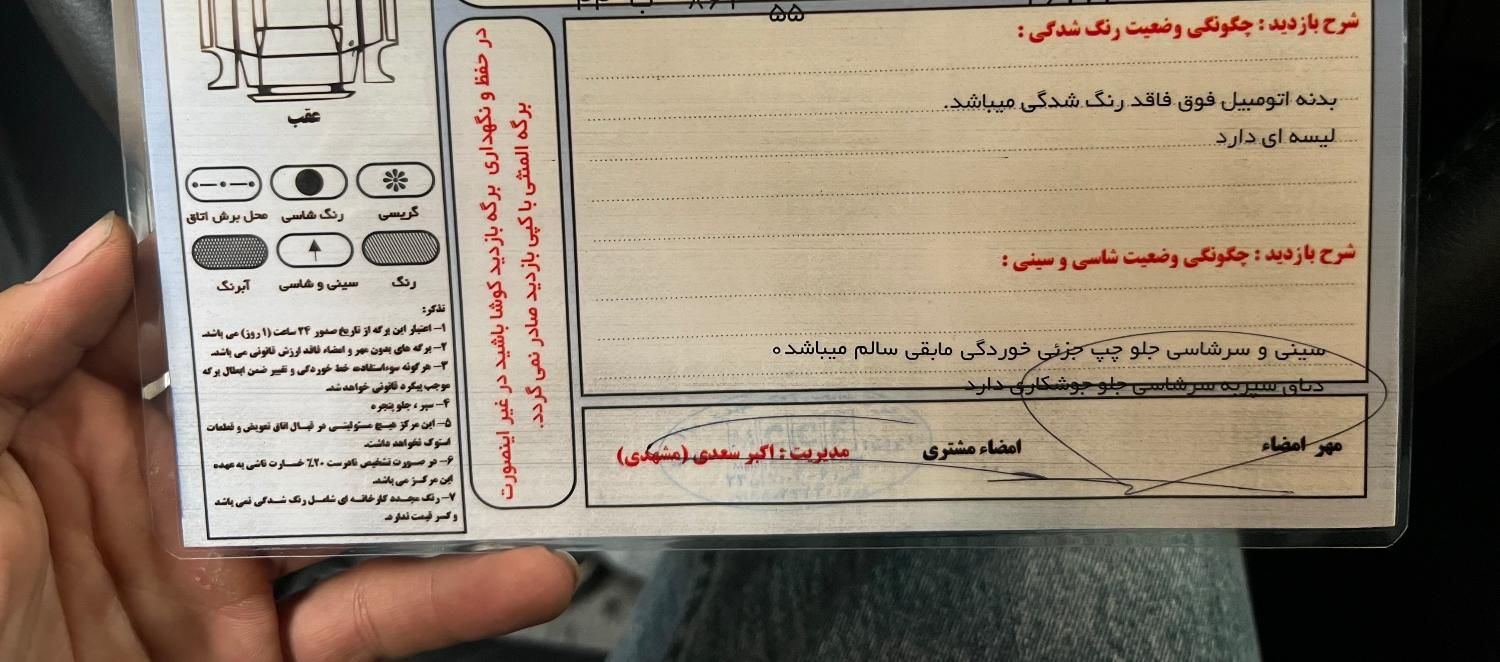 ۵۵
شرح بازدید : چگونگی وضعیت رنگ شدگی :
بدنه اتومبیل فوق فاقد رنگ شدگی میباشد.
لیسه ای دارد
شرح بازدید : چگونگی وضعیت شاسی و سینی :
سینی و سرشاسی جلو چپ جزئی خوردگی مابقی سالم میباشد ه
سرشاسی جلو جوشکاری دارد
مهر امضاء
امضاء مشتری
مدیریت : اکبر سعدی (مشهدی)
در حفظ و نگهداری برگه بازدید کوشا باشید در غیر اینصورت
برگه المثنی با کپی بازدید صادر نمی گردد.
عقب
گریسی
رنگ شاسی
محل برش اتاق
رنگ
سینی و شاسی
آبرنگ
تذکر:
۱- اعتبار این برگه از تاریخ صدور ۲۴ ساعت (۱ روز) می باشد.
۲- برگه های بدون مهر و امضاء فاقد ارزش قانونی می باشد.
۳- هر گونه سوءاستفاده، خط خوردگی و تغییر ضمن ابطال برگه
موجب پیگرد قانونی خواهد شد.
۴- سپر ، جلو پنجره
۵- این مرکز هیچ مسئولیتی در قبال اتاق تعویض و قطعات
استوک نخواهد داشت.
۶- در صورت تشخیص نادرست ۲۰٪ خسارت ناشی به عهده
این مرکز می باشد.
۷- رنگ مجدد کارخانه ای شامل رنگ شدگی نمی باشد
و کسر قیمت ندارد.